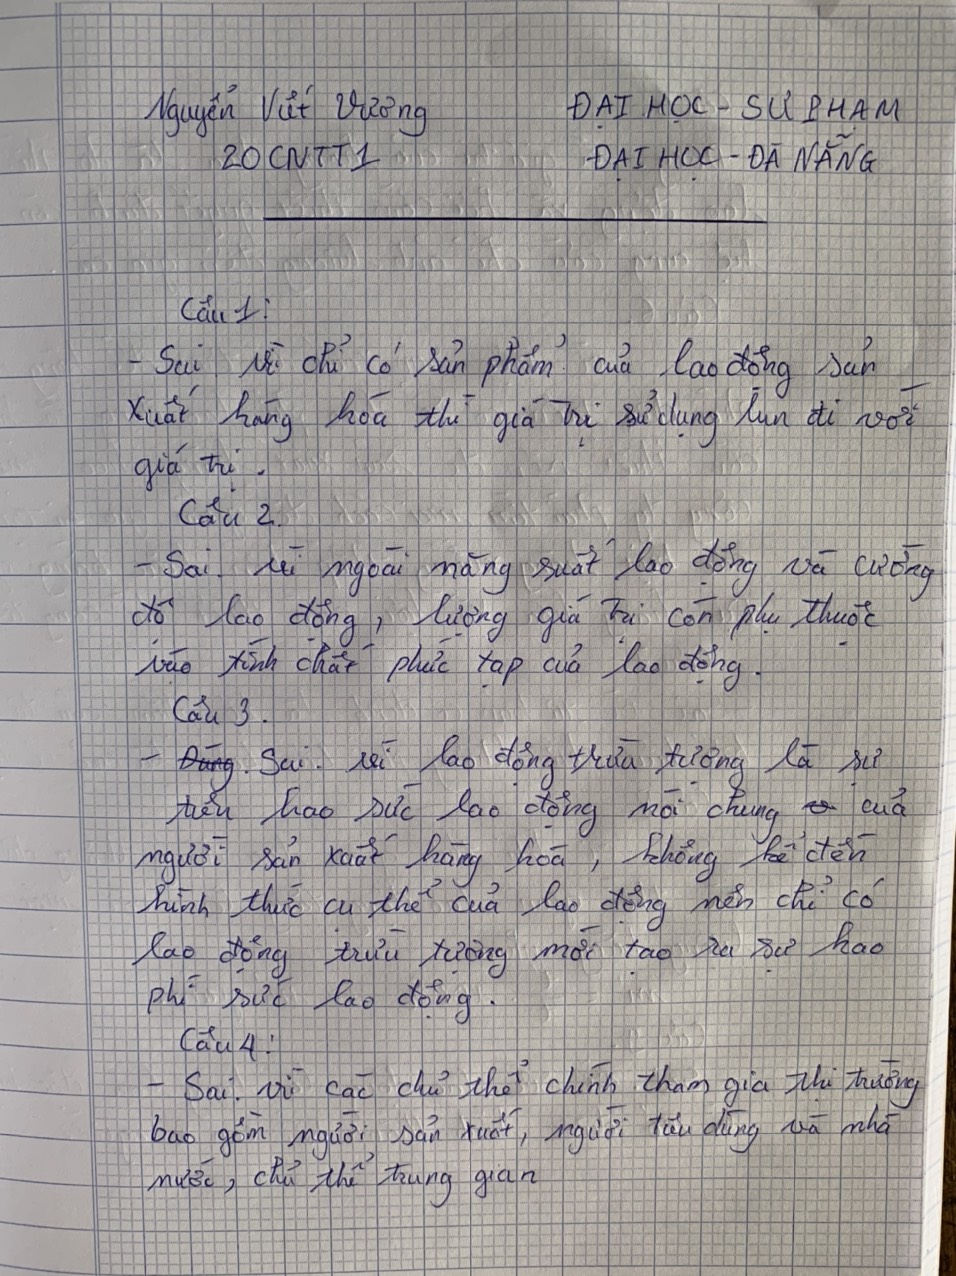 Nguyễn Viết Vương
ĐẠI HỌC - SƯ PHẠM
20CNTT1
ĐẠI HỌC - ĐÀ NẴNG
Câu 1:
- Sai vì chỉ có sản phẩm của lao động sản
xuất hàng hóa thì giá trị sử dụng luôn đi với
giá trị.
Câu 2.
- Sai. vì ngoài năng suất lao động và cường
độ lao động, lượng giá trị còn phụ thuộc
vào tính chất phức tạp của lao động.
Câu 3.
- Đúng. Sai. vì lao động trừu tượng là sự
tiêu hao sức lao động nói chung của
người sản xuất hàng hoá, không kể đến
hình thức cụ thể của lao động nên chỉ có
lao động trừu tượng mới tạo ra sự hao
phí sức lao động.
Câu 4:
- Sai. vì các chủ thể chính tham gia thị trường
bao gồm người sản xuất, người tiêu dùng và nhà
nước, chủ thể trung gian